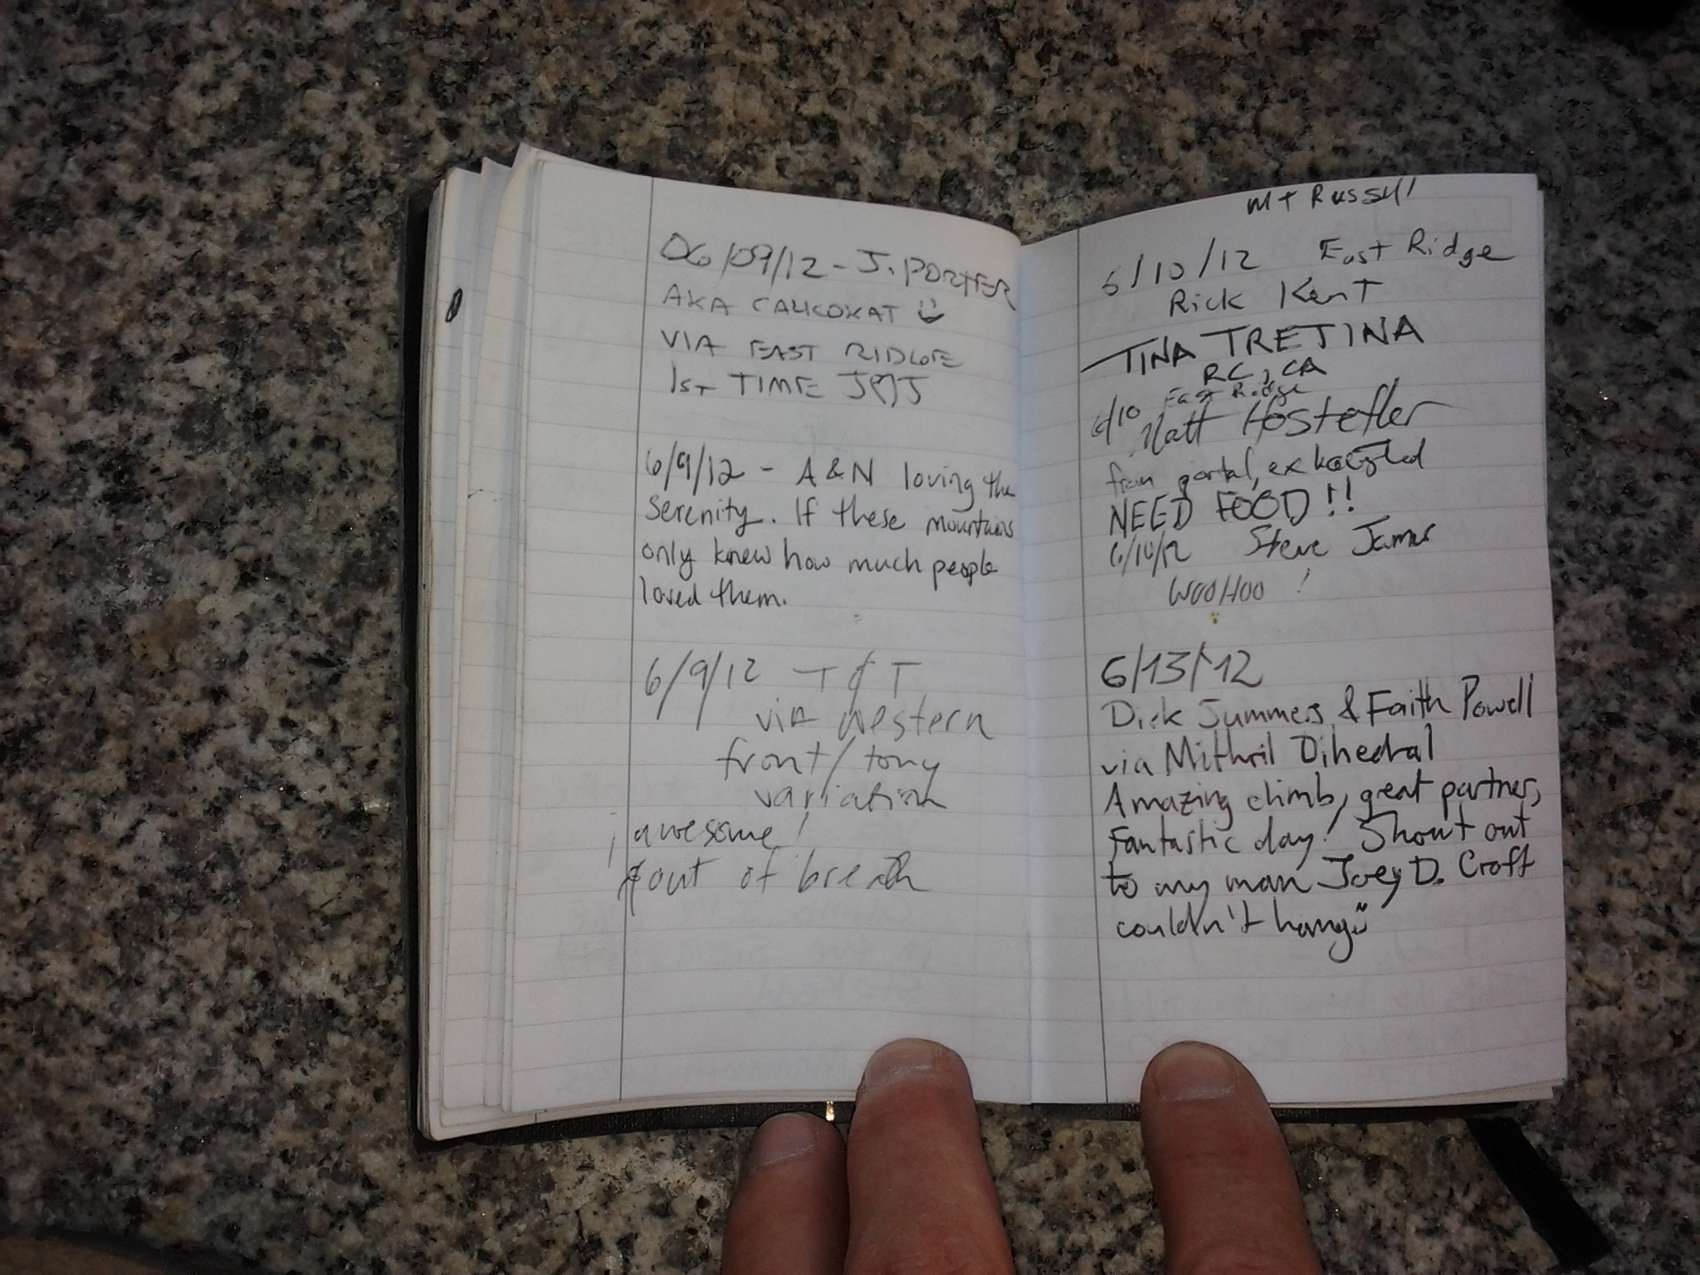 06/09/12 - J. PORTER
AKA CALICOKAT
VIA EAST RIDGE
1ST TIME
6/9/12 - A & N loving the
serenity. If these mountains
only knew how much people
loved them.
6/9/12 T & T
via western
front/tony
variation
¡awesome!
& out of breath
Mt Russell
6/10/12 East Ridge
Rick Kent
TINA TRETINA
RC, CA
6/10 East Ridge
Matt Hostetler
from portal, exhausted
NEED FOOD!!
6/10/12 Steve James
WOOHOO!
6/13/12
Dick Summers & Faith Powell
via Mithril Dihedral
Amazing climb, great partner,
Fantastic day! Shout out
to my man Joey D. Croft
couldn't hang